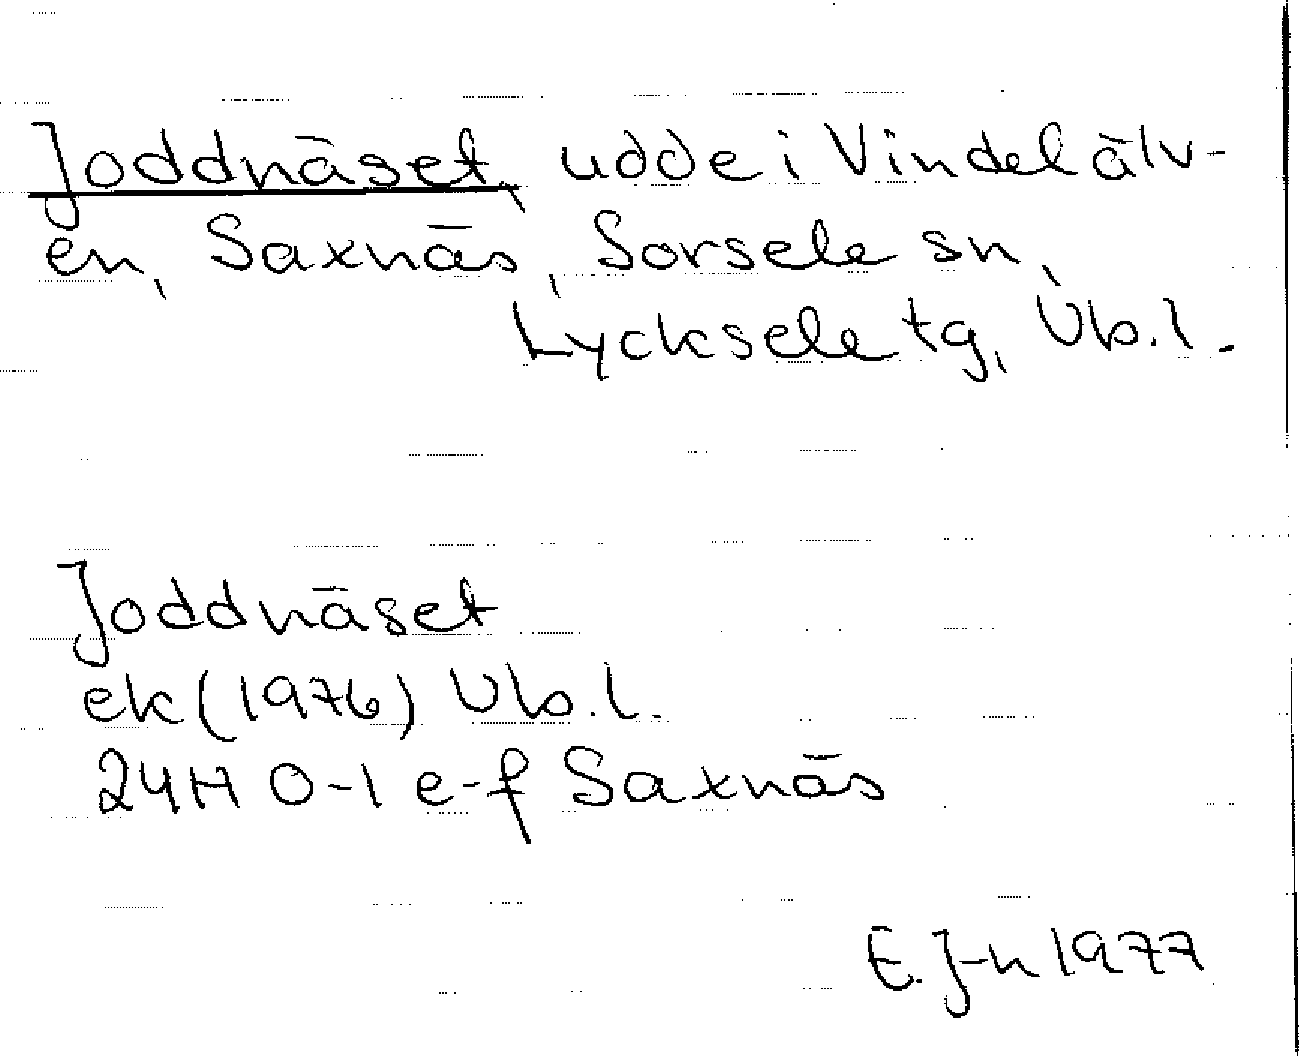 Joddnäset, udde i Vindelälv-
en, Saxnäs, Sorsele sn,
Lycksele tg, Vb.l.
Joddnäset
ek (1976) Vb.l.
24H 0-1 e-f Saxnäs
E. J-n 1977